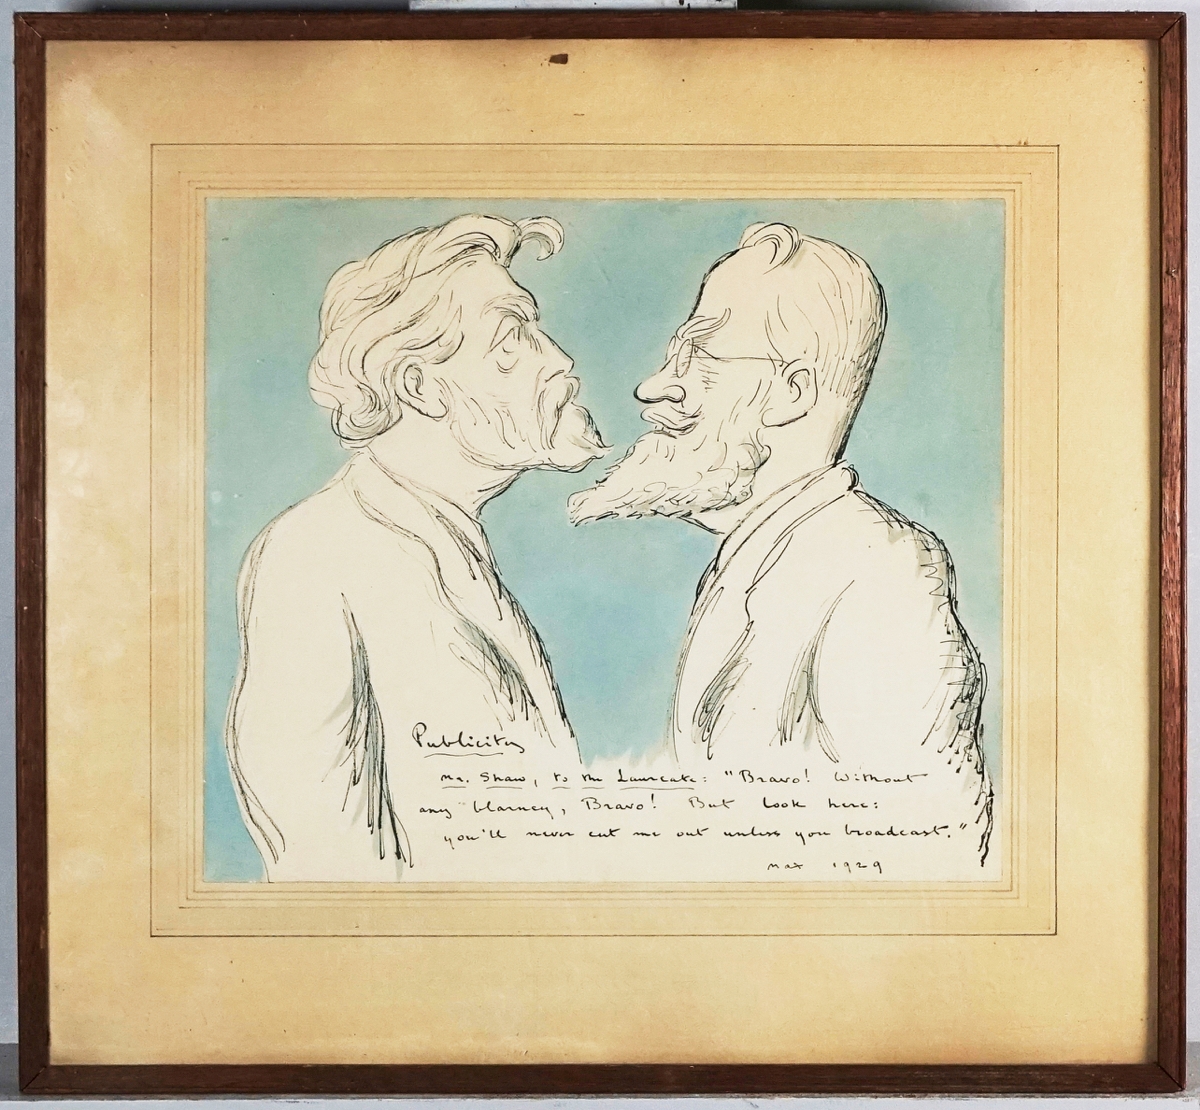 Publicity
Mr. Shaw, to the Laureate: "Bravo! Without
any blarney, Bravo! But look here:
you'll never cut me out unless you broadcast."
Max 1929